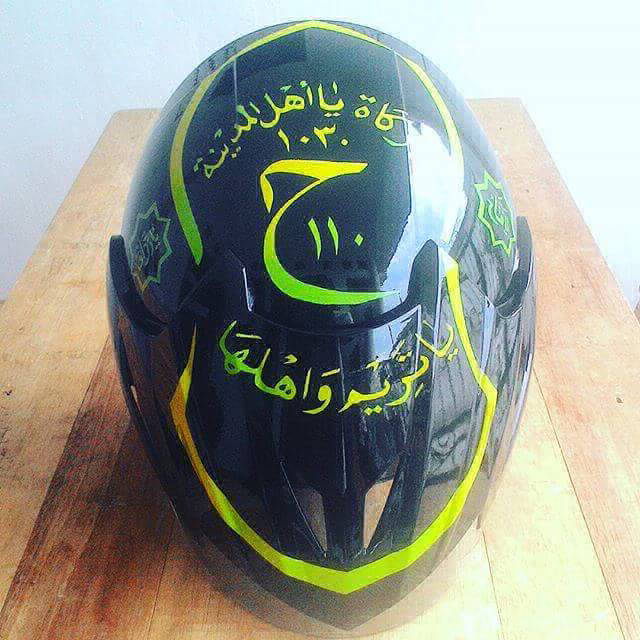 يا أهل المدينة
١٠٣٠
ح
١١٠
يا تريم وَاهْلَهَا